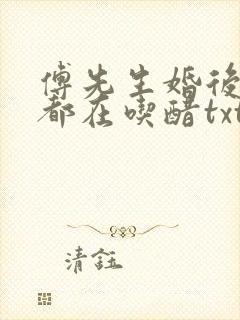 傅先生婚後
都在喫醋txt
清鈺